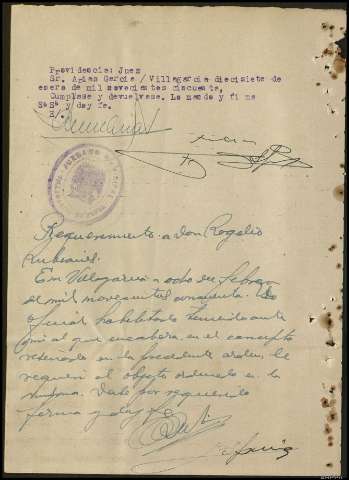 Providencia: Juez
Sr. Arias Garcia / Villagarcia diecisiete de
enero de mil novecientos cincuenta.
Cumplase y devuelvase. Lo mando y firma
SªSª y doy fe.
E/.
JUZGADO MUNICIPAL
Requerimiento a Don Rogelio
Rubianes.
En Villagarcia a ocho de febrero
de mil novecientos cincuenta. Yo
oficial habilitado teniendo ante
mi al que encabeza en el concepto
reseñado en la precedente orden, le
requeri al objeto ordenado en la
misma. Dado por requerido
firma y doy fe